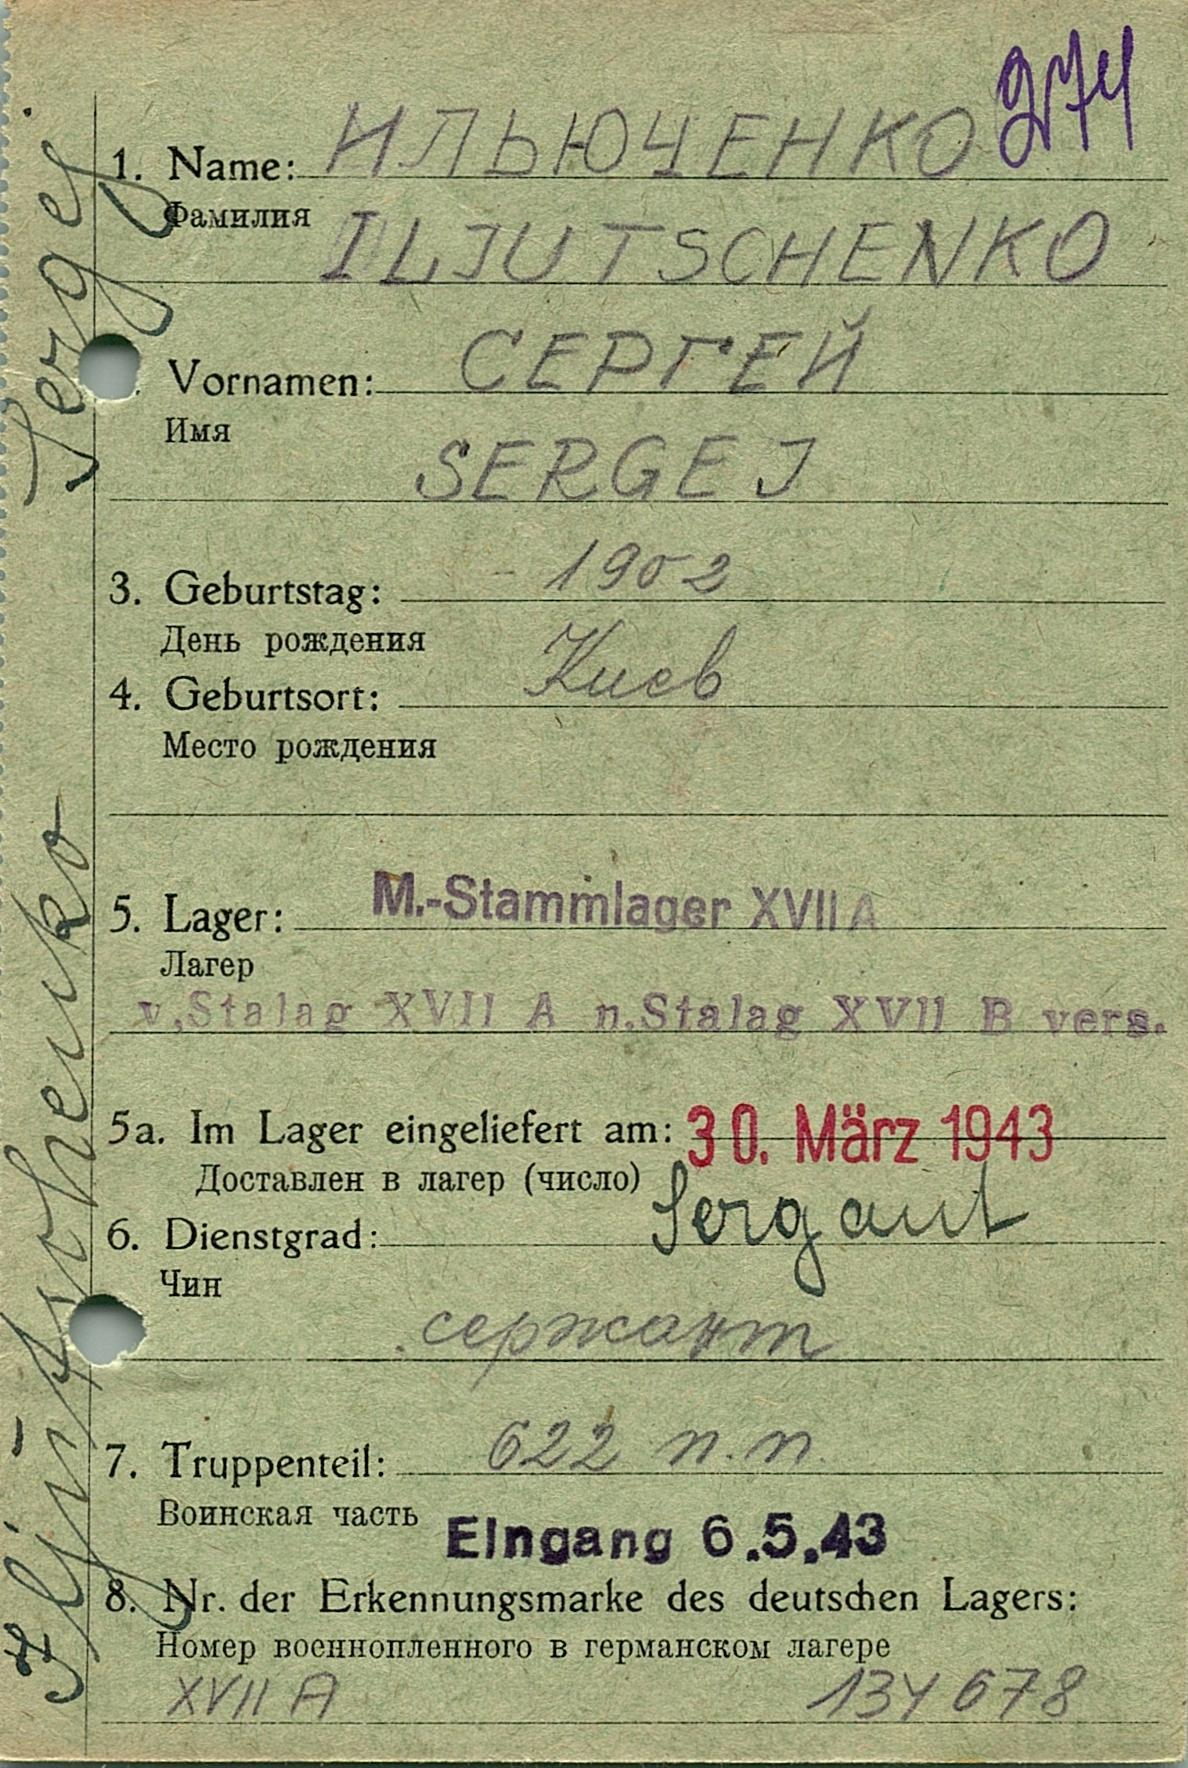 274
1. Name: ИЛЬЮЧЕНКО
Фамилия
ILJUTSCHENKO
Vornamen: СЕРГЕЙ
Имя
SERGEJ
3. Geburtstag: 1902
День рождения
4. Geburtsort: Киев
Место рождения
5. Lager: M.-Stammlager XVII A
Лагер
v.Stalag XVII A n.Stalag XVII B vers.
5a. Im Lager eingeliefert am: 30. März 1943
Доставлен в лагер (число)
6. Dienstgrad: Sergant
Чин
сержант
7. Truppenteil: 622 п.п.
Воинская часть
Eingang 6.5.43
8. Nr. der Erkennungsmarke des deutschen Lagers:
Номер военнопленного в германском лагере
XVII A 134678
Iljutschenko Sergej